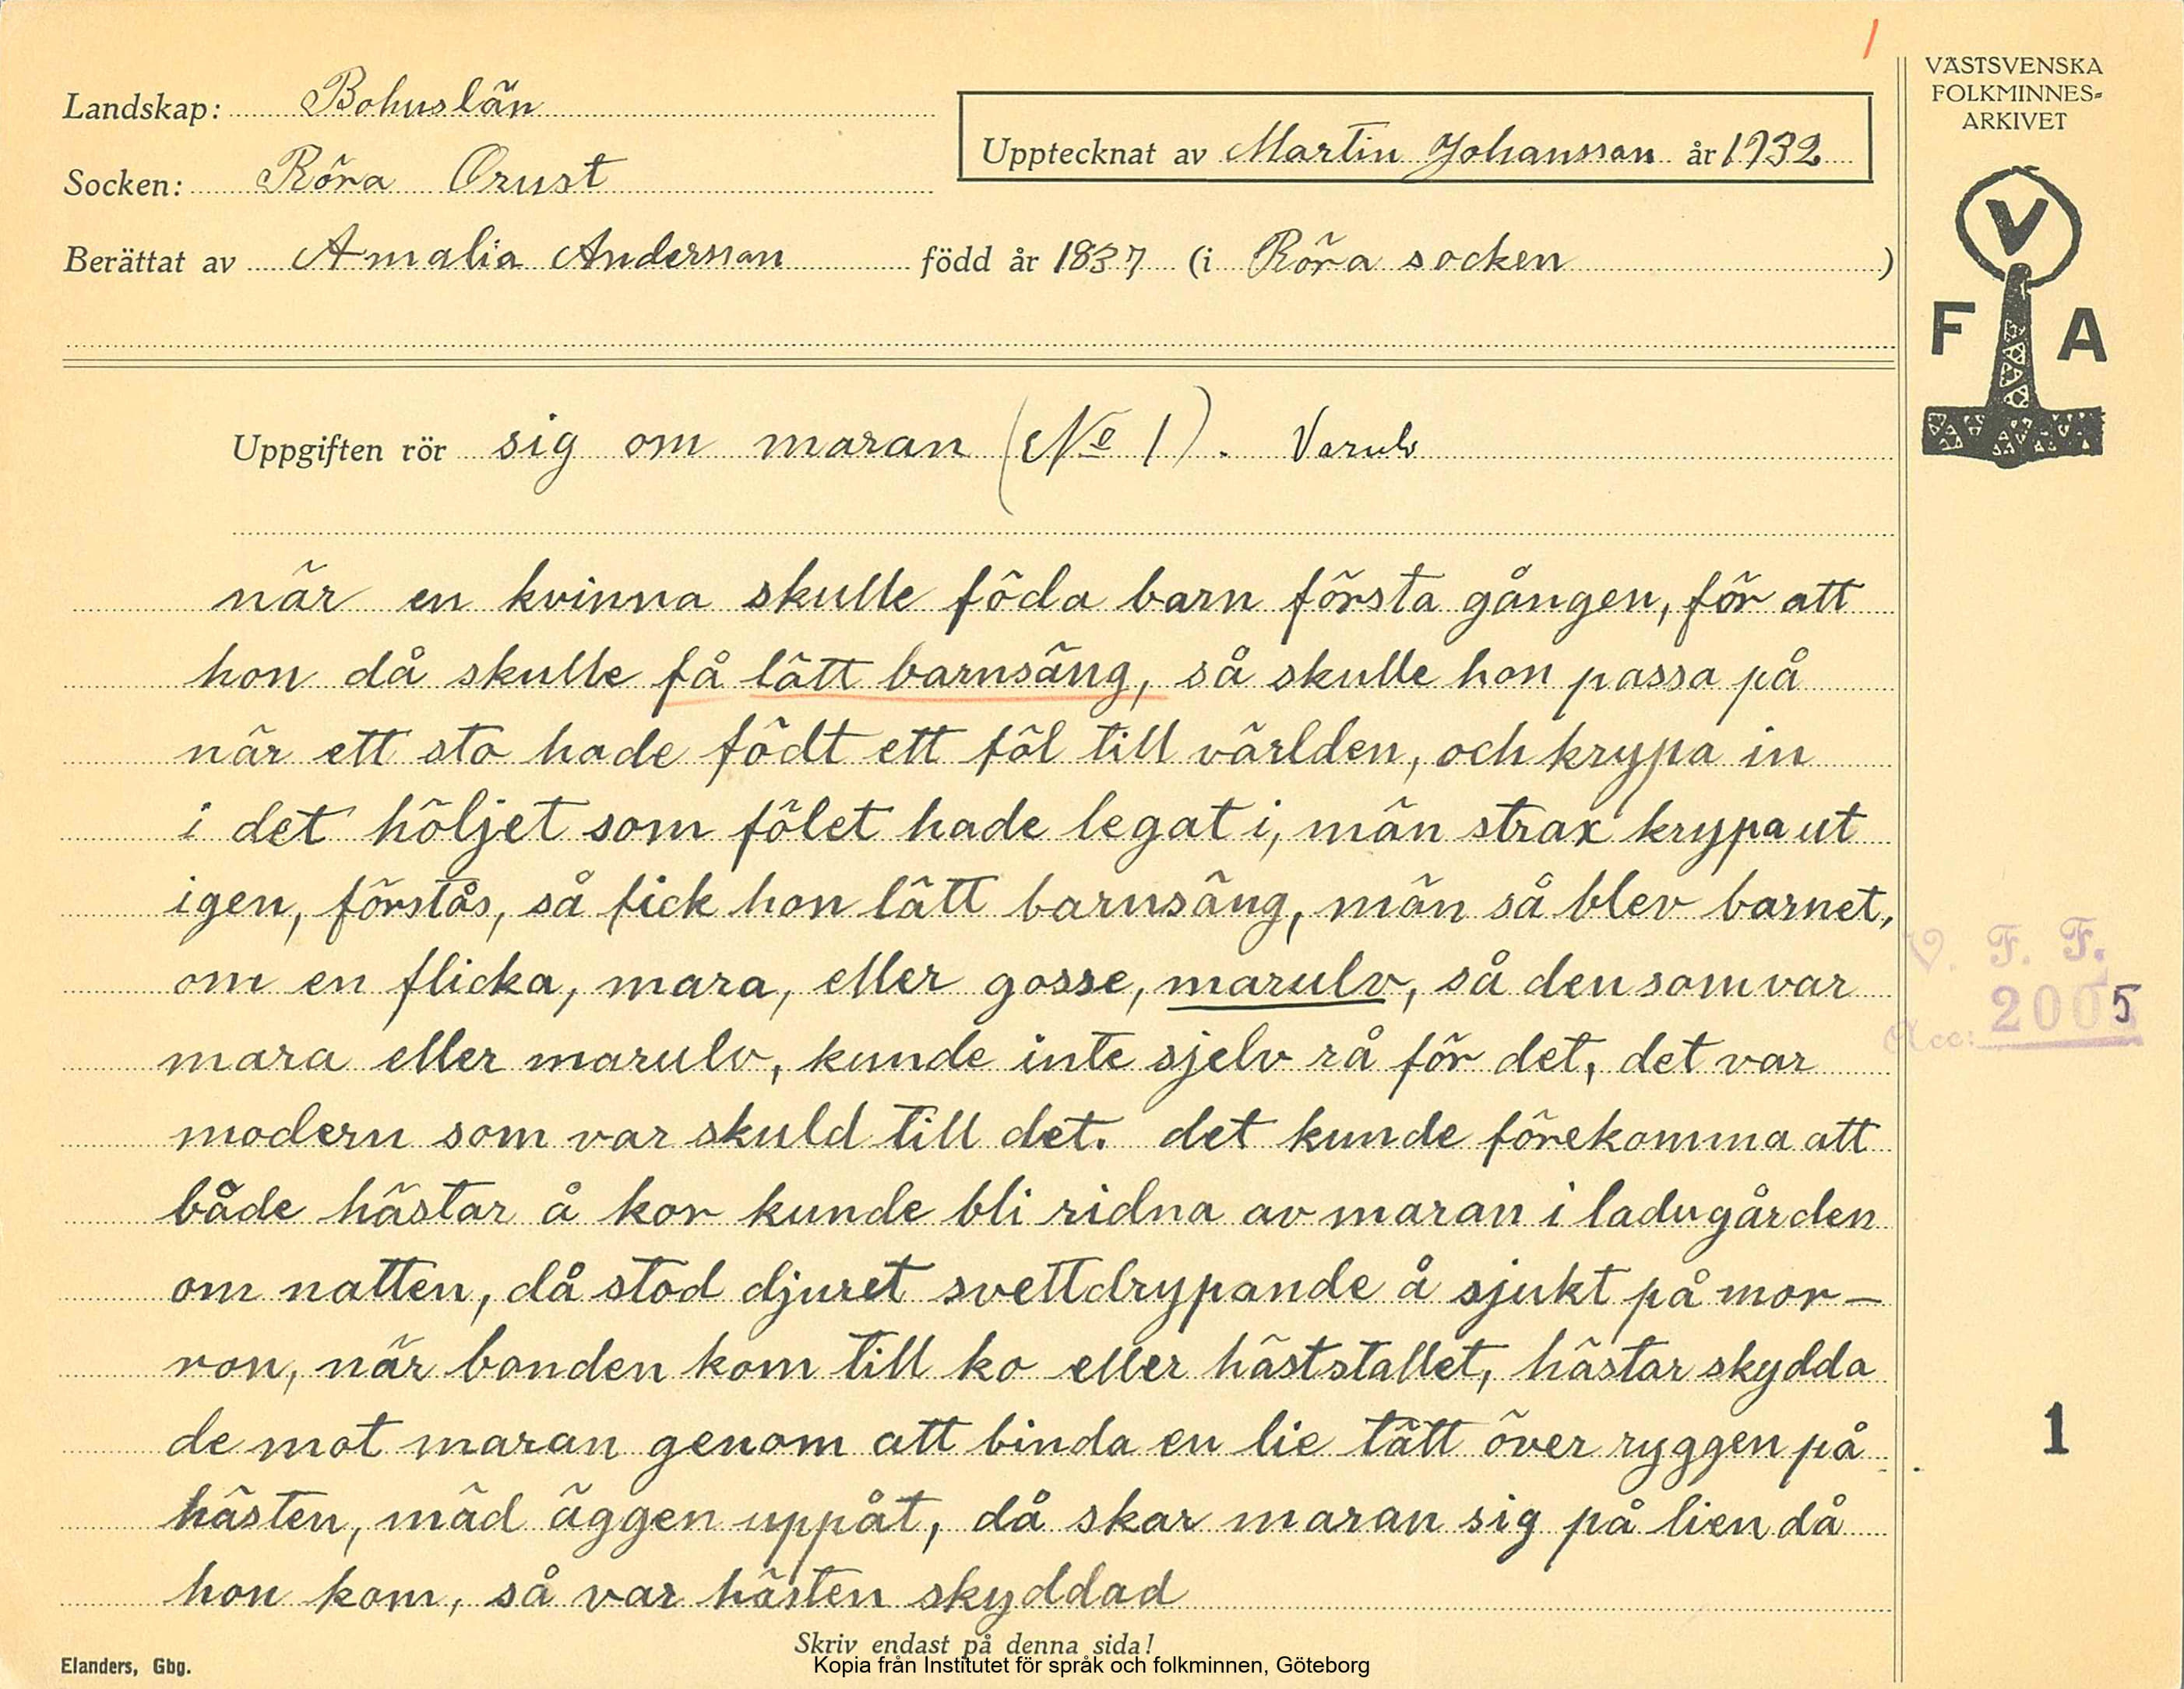 1
VÄSTSVENSKA
FOLKMINNES-
ARKIVET
V
F A
Landskap: Bohuslän
Socken: Röra Orust
Upptecknat av Martin Johansson år 1932
Berättat av Amalia Andersson född år 1837 (i Röra socken )
Uppgiften rör sig om maran (No 1). Varulv
när en kvinna skulle föda barn första gången, för att
hon då skulle få lätt barnsäng, så skulle hon passa på
när ett sto hade födt ett föl till världen, och krypa in
i det höljet som fölet hade legat i, män strax krypa ut
igen, förstås, så fick hon lätt barnsäng, män så blev barnet,
om en flicka, mara, eller gosse, marulv, så den som var
mara eller marulv, kunde inte sjelv rå för det, det var
modern som var skuld till det. det kunde förekomma att
både hästar å kor kunde bli ridna av maran i ladugården
om natten, då stod djuret svettdrypande å sjukt på mor-
ron, när bonden kom till ko eller häststallet, hästar skydda
de mot maran genom att binda en lie tätt över ryggen på
hästen, mäd äggen uppåt, då skar maran sig på lien då
hon kom, så var hästen skyddad
V. F. F.
Acc: 2005
1
Skriv endast på denna sida!
Elanders, Gbg.
Kopia från Institutet för språk och folkminnen, Göteborg